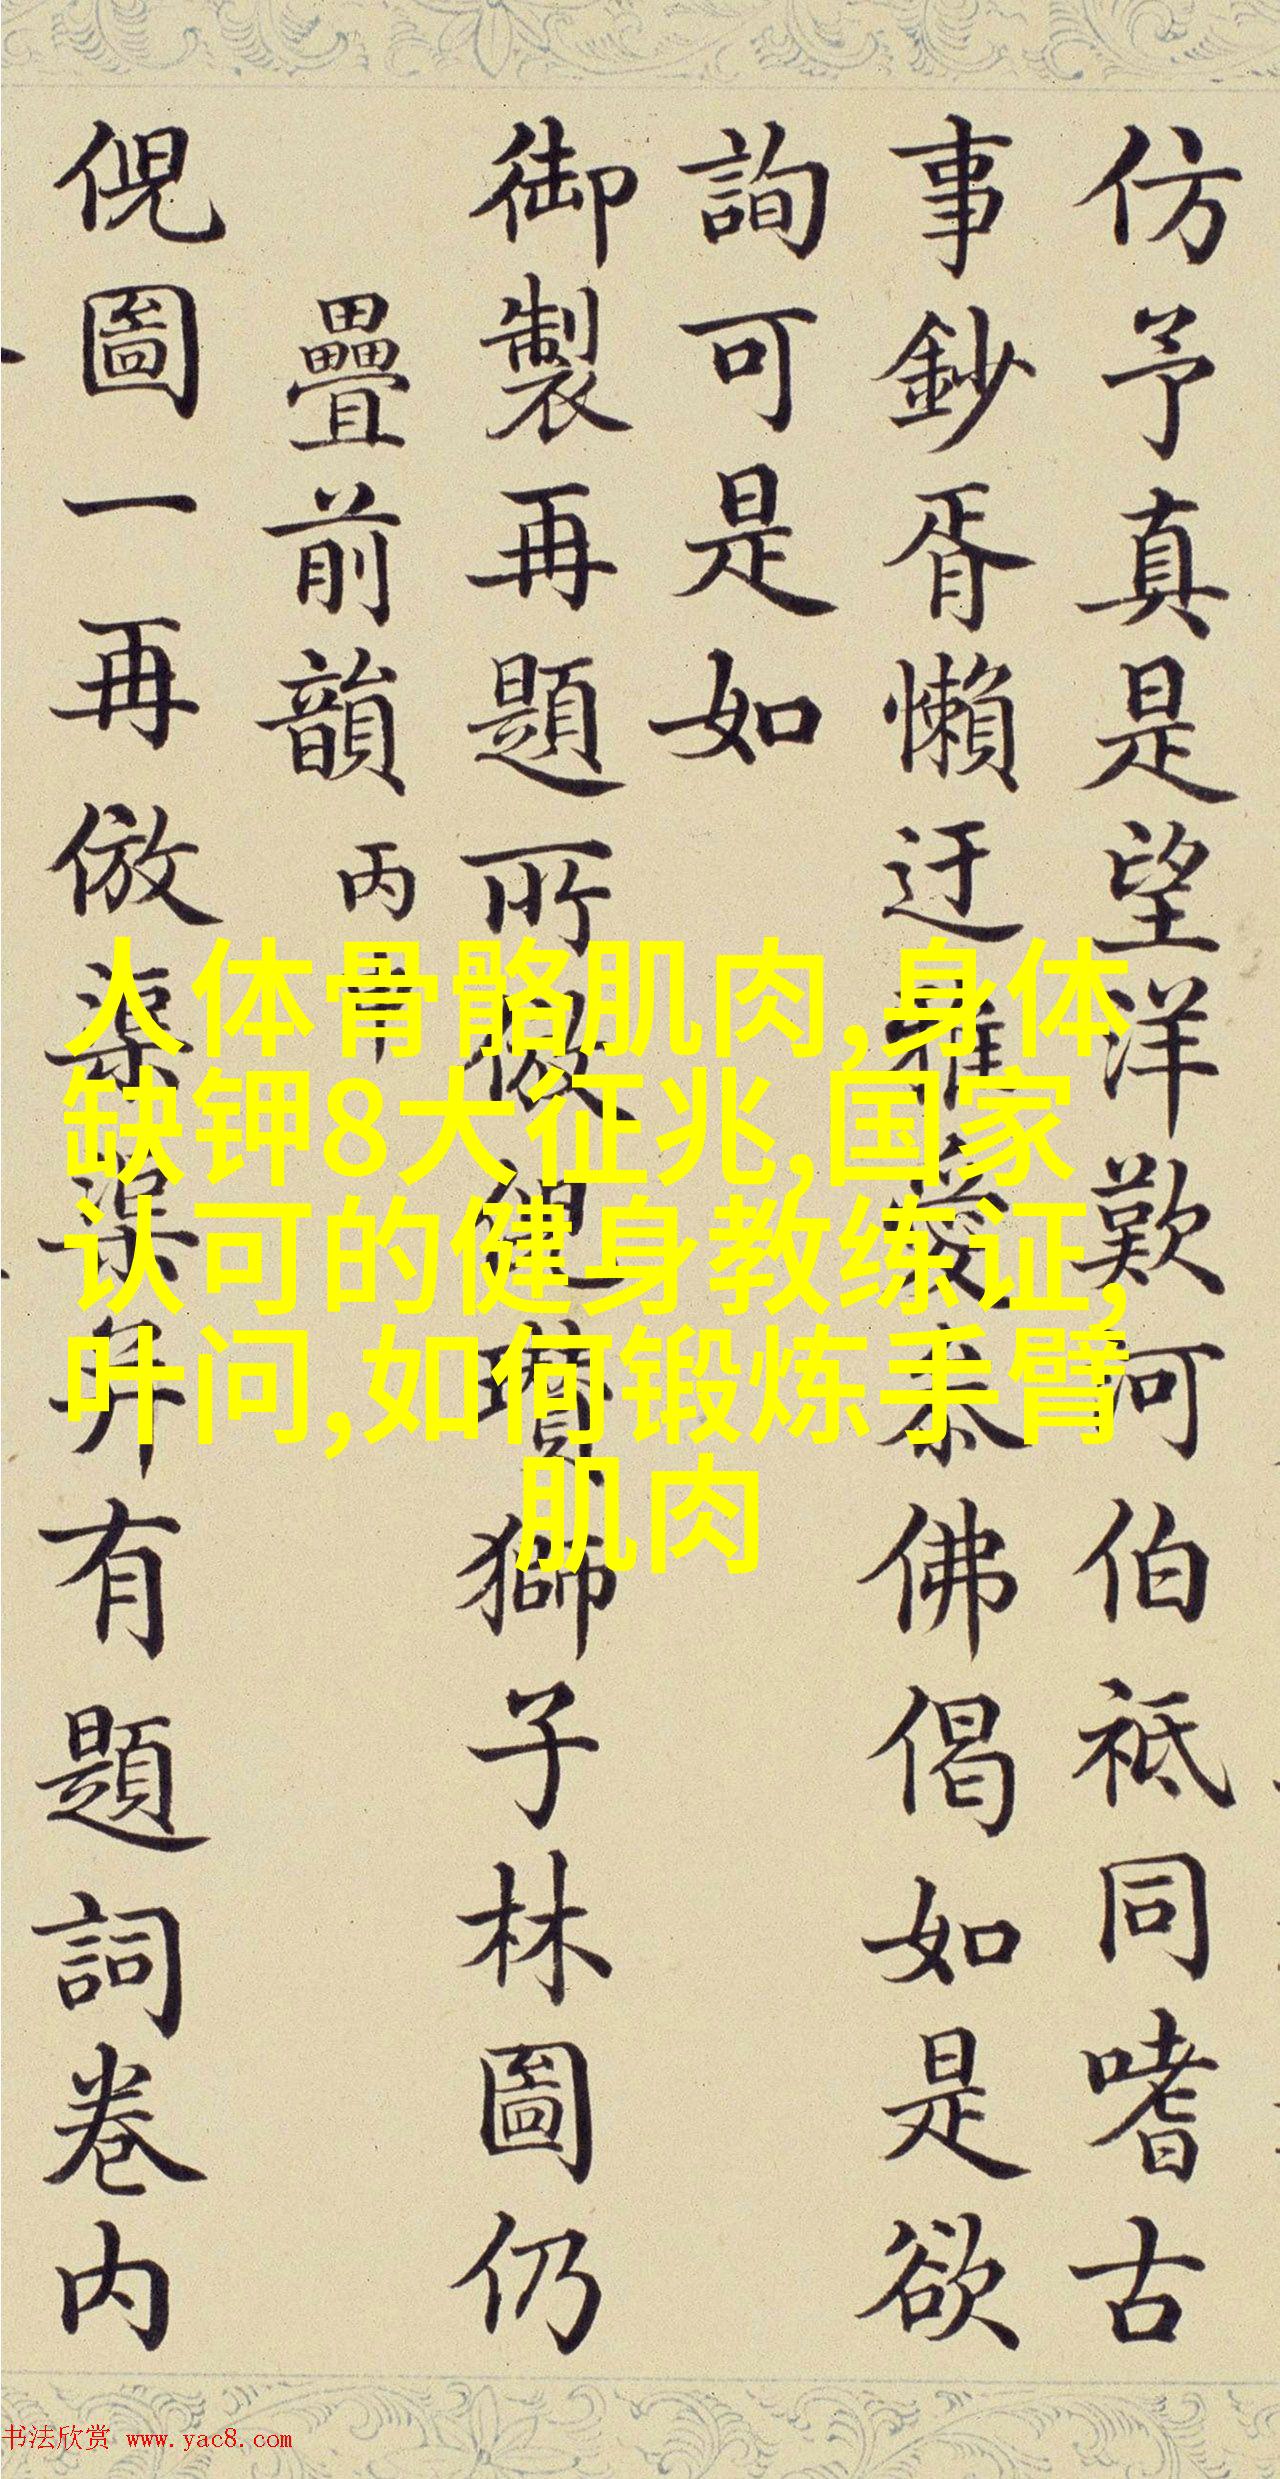 仿予真是望洋歎河伯祗同嗜古
事鈔胥懶迂雅愛泰佛偈如是欲
詢可是如
御製再題所倣倪瓚獅子林圖仍
疊前韻 丙申
倪圖一再倣渠渠弆有題詞卷內
人体骨骼肌肉,身体
缺钾8大征兆,国家
认可的健身教练证,
叶问,如何锻炼手臂
肌肉
书法欣赏 www.yac8.com